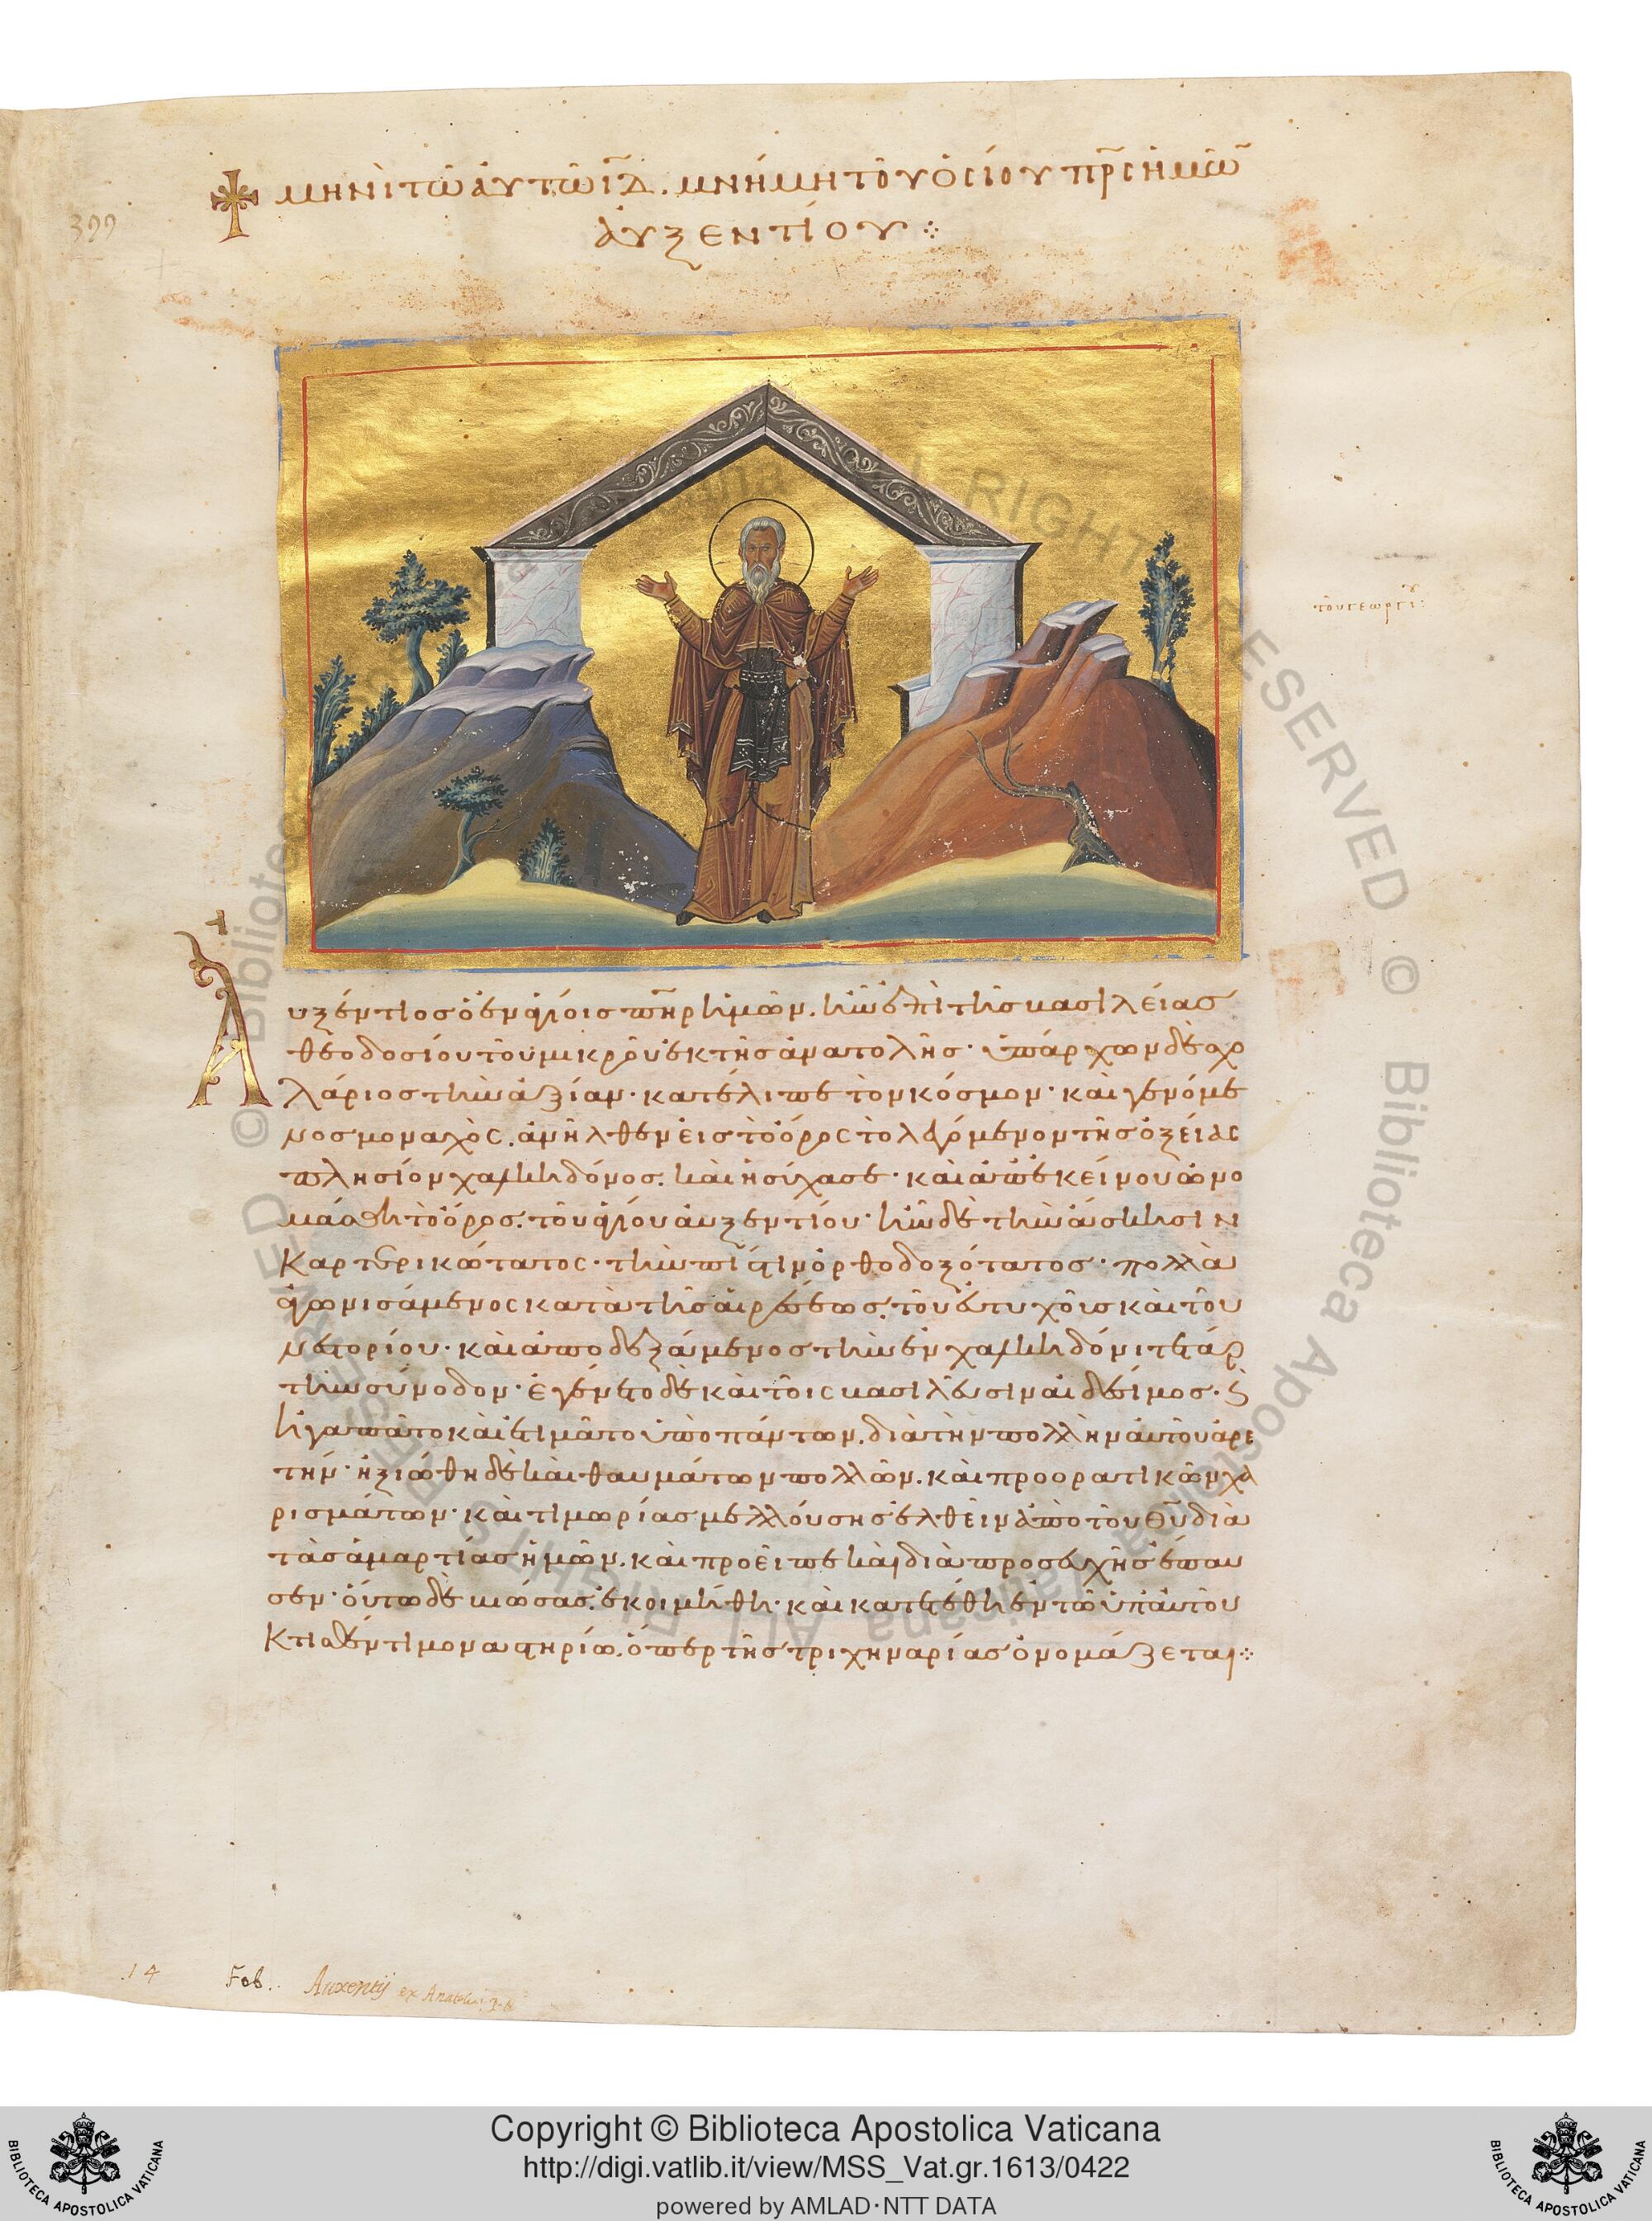 399
μηνὶ τῶ ἀυτῶ ΙΔ. μνήμη τοῦ ὁσίου πρς ἡμῶ
ἀυξεντίου
του γεωργι
Αυξέντιος ὁ ἐν ἁγίοις πηρ ἡμῶν. ἦν ἐπὶ τῆς βασιλείας
θεοδοσίου τοῦ μικροῦ ἐκ τῆς ἀνατολῆς· ὑπάρχων δὲ σχο
λάριος τὴν ἀξίαν· κατέλιπε τὸν κόσμον· καὶ γενόμε
νος μοναχὸς. ἀνῆλθεν εἰς τὸ ὄρος τὸ λεγόμενον τῆς ὀξείας
πλησίον χαλκηδόνος. καὶ ἡσύχασε· καὶ ἀπ ἐκείνου ὠνο
μάσθη τὸ ὄρος. τοῦ ἁγίου ἀυξεντίου· ἦν δὲ τὴν ἄσκησιν
καρτερικώτατος· τὴν πίστιν ὀρθοδοξότατος· πολλὰ
ἀγωνισάμενος κατὰ τῆς αἱρέσεως. τοῦ ἐυτυχοῦς καὶ τοῦ
νεστορίου· καὶ ἀποδεξάμενος τὴν ἐν χαλκηδόνι τετάρ
την σύνοδον· ἐγένετο δὲ καὶ τοῖς βασιλεῦσιν αἰδέσιμος· ϗ
ἠγαπᾶτο καὶ ἐτιμᾶτο ὑπὸ πάντων. διὰ τὴν πολλὴν ἀυτοῦ ἀρε
τήν· ἠξιώθη δὲ καὶ θαυμάτων πολλῶν. καὶ προορατικῶν χα
ρισμάτων· καὶ τιμωρίας μελλούσης ἐλθεῖν ἀπὸ τοῦ θυ διὰ
τὰς ἁμαρτίας ἡμῶν. καὶ προεῖπε καὶ διὰ προσευχῆς ἔπαυ
σεν· οὕτω δὲ βιώσας. ἐκοιμήθη· καὶ κατετέθη ἐν τῶ ὑπ ἀυτοῦ
κτισθέντι μοναστηρίω. ὅπερ τῆς τριχηναρίας ὀνομάζεται
14 Feb. Auxentij ex Anatol
© Biblioteca Apostolica Vaticana ALL RIGHTS RESERVED © Biblioteca Apostolica Vaticana ALL RIGHTS RESERVED
Copyright © Biblioteca Apostolica Vaticana
http://digi.vatlib.it/view/MSS_Vat.gr.1613/0422
powered by AMLAD·NTT DATA
BIBLIOTECA APOSTOLICA VATICANA
BIBLIOTECA APOSTOLICA VATICANA